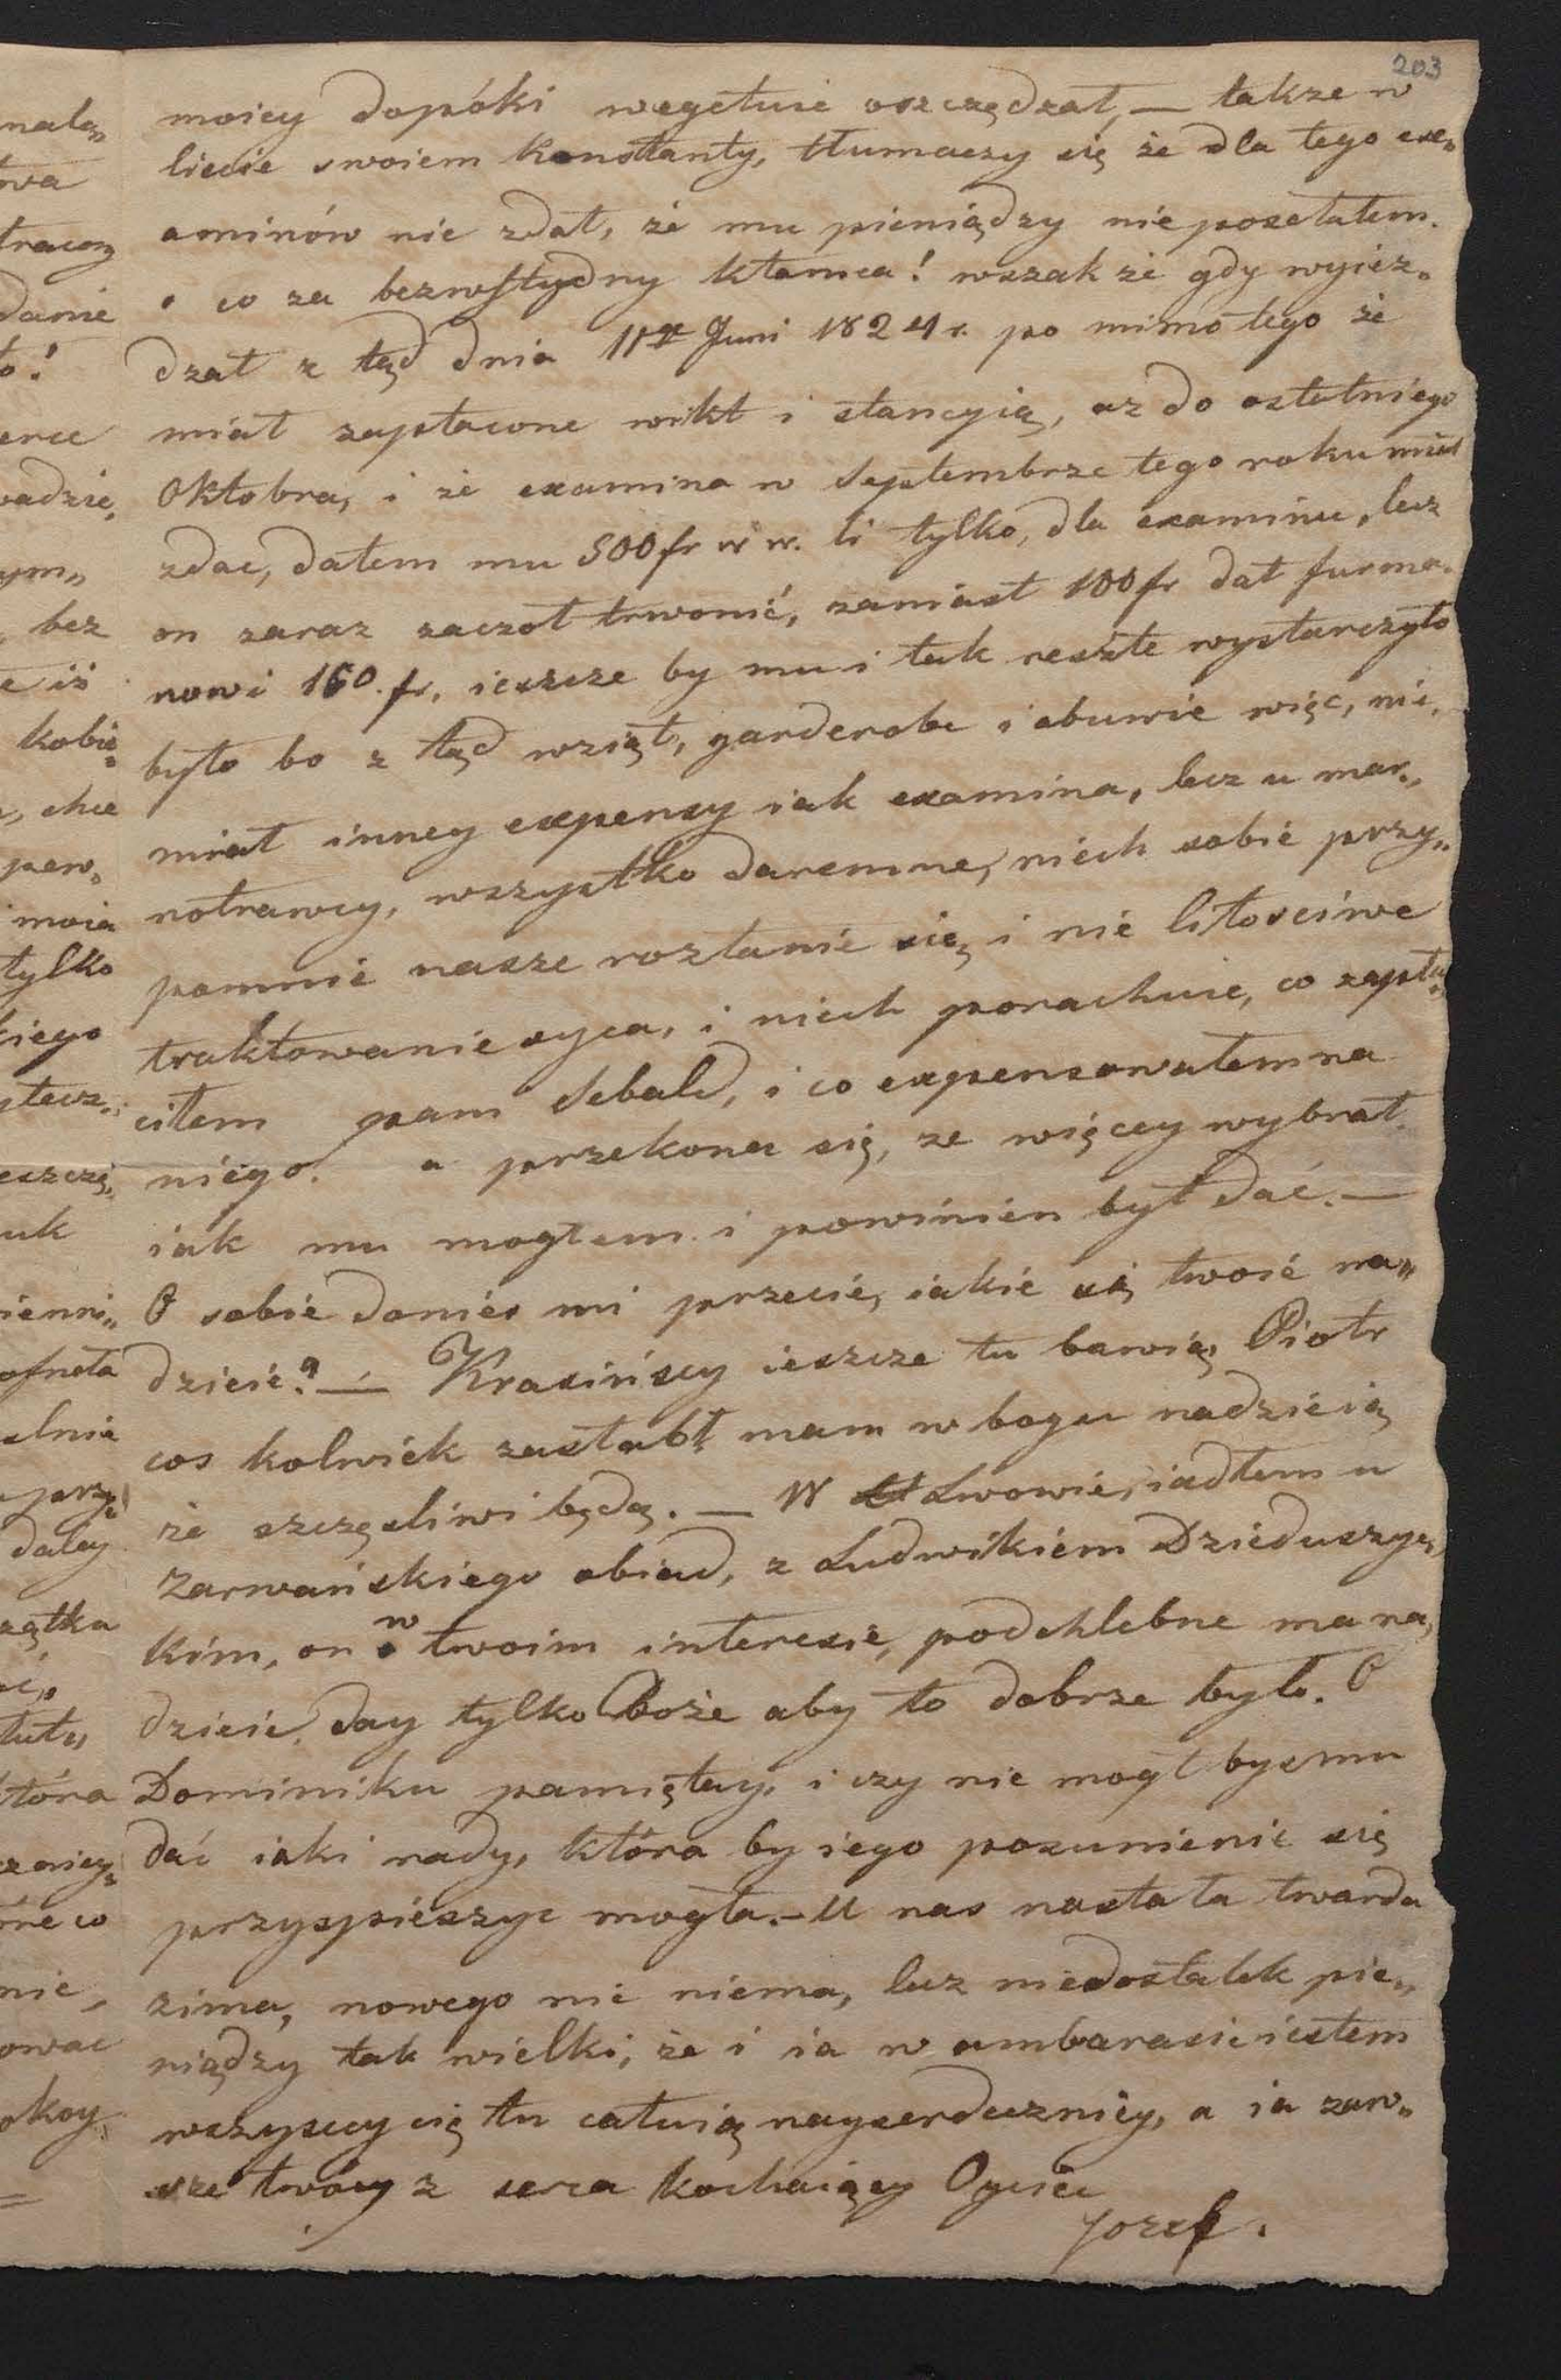 203
moiey dopóki wegetuie oszczędzał, — takze w
liscie swoiem Konstanty, tłumaczy się że dla tego exe„
aminów nie zdał, że mu pieniądzy nie posełałem.
o co za bezwstydny kłamca! wszak że gdy wyież„
dzał z tąd dnia 11ga Juni 1824 r. po mimo tego że
miał zapłacone wikt i stancyią, az do ostatniego
Oktobra, i że examina w Septembrze tego roku miał
zdac, dałem mu 500 fr w w. li tylko, dla examinu, lecz
on zaraz zaczoł trwonić, zamiast 100 fr dał furma„
nowi 160. fr, ieszcze by mu i tak reszte wystarczyło
było bo z tąd wziął, garderobe i obuwie więc, nie„
miał inney expensy iak examina, lecz u mar„
notrawcy, wszystko daremne, niech sobie przy„
pomnie nasze rozłanie się, i nie litosciwe
traktowanie oyca, i niech porachuie, co zapła„
ciłem pani Sebald, i co expensowałem na
niego. a przekona się, ze więcey wybrał
iak mu mogłem i powinien był dać. —
O sobie donies mi przecie, iakie są twoie na„
dzieie? — Krasińscy ieszcze tu bawią, Piotr
cos kolwiek zasłabł, mam w bogu nadzieią
że szczęsliwi będą. — W Lwowie, iadłem u
Zarwańskiego obiad, z Ludwikiem Dzieduszyc„
kim, on w twoim interesie, podchlebne ma na„
dzieie, day tylko Boże aby to dobrze było. O
Dominiku pamiętay, i czy nie mogł bys mu
dać iaki rady, która by iego posunienie się
przyspieszyc mogła. — U nas nastała twarda
zima, nowego nic niema, lecz niedostatek pie„
niądzy tak wielki, że i ia w ambarasie iestem
wszyscy cię tu całuią nayserdeczniey, a ia zaw„
sze twóy z serca kochaiący Oyciec
Jozef.